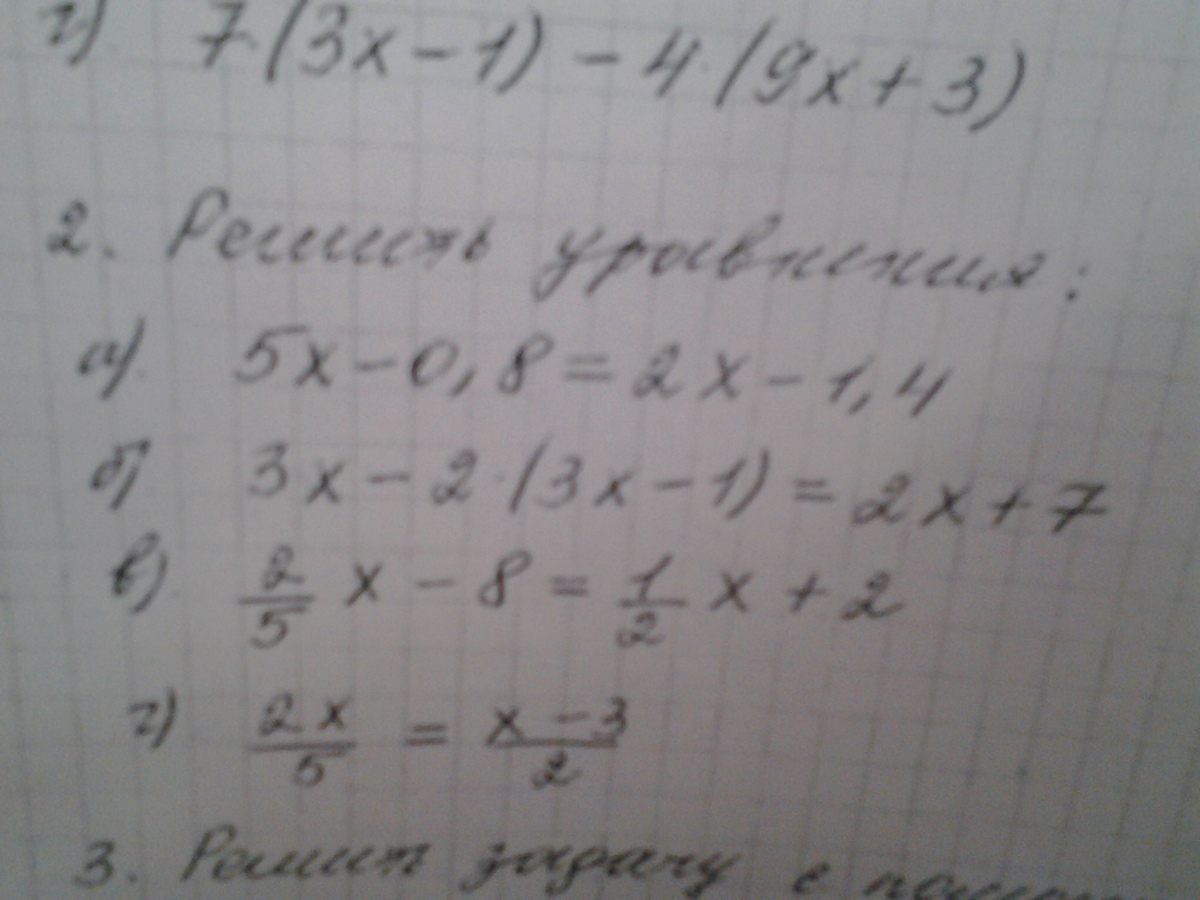 г) 7·(3x-1)-4·(9x+3)
2. Решить уравнения:
а) 5x-0,8=2x-1,4
б) 3x-2·(3x-1)=2x+7
в) 2/5 x-8=1/2 x+2
г) 2x/5=x-3/2
3. Решить задачу с